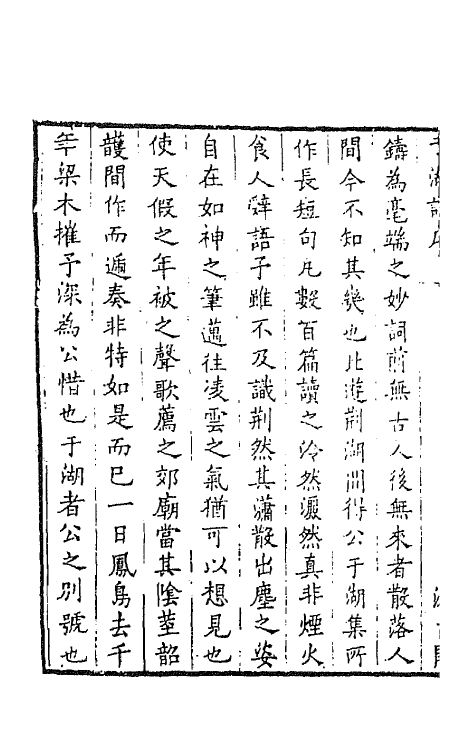 鑄為毫端之妙詞前無古人後無來者散落人
間今不知其幾也比遊荆湖間得公于湖集所
作長短句凡數百篇讀之泠然灑然真非煙火
食人辭語予雖不及識荆然其瀟散出塵之姿
自在如神之筆邁往凌雲之氣猶可以想見也
使天假之年被之聲歌薦之郊廟當其陰莖韶
頀間作而遞奏非特如是而已一日鳳鳥去千
年梁木摧予深為公惜也于湖者公之別號也